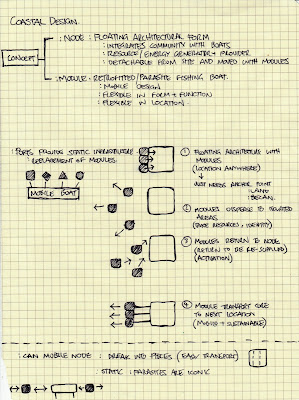 COASTAL DESIGN.
CONCEPT
: NODE : FLOATING ARCHITECTURAL FORM
: INTEGRATES COMMUNITY WITH BOATS
: RESOURCE/ENERGY GENERATOR + PROVIDER
: DETACHABLE FROM SITE AND MOVED WITH MODULES
: MODULE : RETROFITTED/PARASITE FISHING BOAT.
: MOBILE DESIGN
: FLEXIBLE IN FORM + FUNCTION
: FLEXIBLE IN LOCATION.
: PORTS PROVIDE STATIC
REPLACEMENT OF MODULES
MOBILE BOAT
① FLOATING ARCHITECTURE WITH
MODULES
(LOCATION ANYWHERE)
JUST NEEDS ANCHOR POINT
② MODULES DISPERSE TO RELATED
AREAS
(RESOURCES, IDENTITY)
③ MODULES RETURN TO NODE
(RETURN TO BE RE-SUPPLIED)
(ACTIVATION)
④ MODULE TRANSPORT CORE
TO NEXT LOCATION
(MOBILE + SUSTAINABLE)
: CAN MOBILE NODE : BREAK INTO PIECES (EASY TRANSPORT)
: STATIC : PARASITES ARE ICONIC